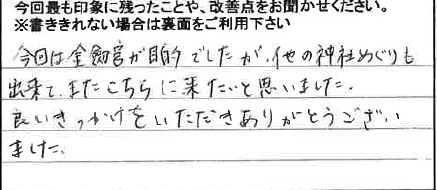 今回最も印象に残ったことや、改善点をお聞かせください。
※書ききれない場合は裏面をご利用下さい
今回は金劔宮が目的でしたが、他の神社めぐりも
出来て、またこちらに来たいと思いました。
良いきっかけをいただきありがとうござい
ました。